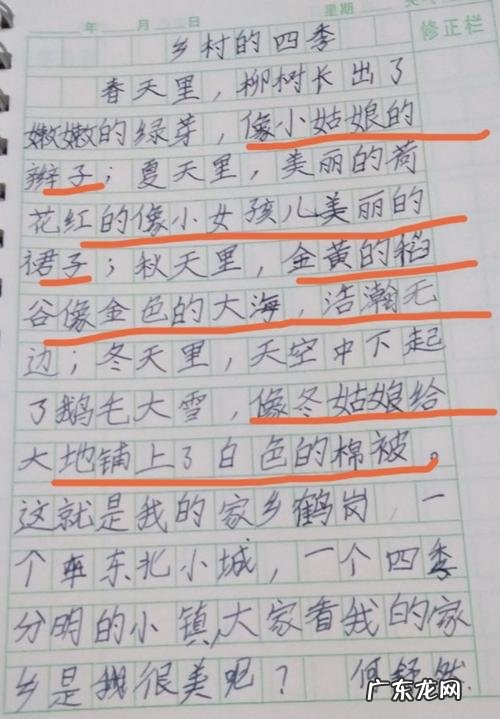 年 月 日 星期
修正栏
乡村的四季
春天里，柳树长出了
嫩嫩的绿芽，像小姑娘的
辫子；夏天里，美丽的荷
花红的像小女孩儿美丽的
裙子；秋天里，金黄的稻
谷像金色的大海，浩瀚无
边；冬天里，天空中下起
了鹅毛大雪，像冬姑娘给
大地铺上了白色的棉被。
这就是我的家乡鹤岗，一
个东北小城，一个四季
分明的小镇，大家看我的家
乡是我很美吧？ 何
广东龙网
www.gdxxb.com